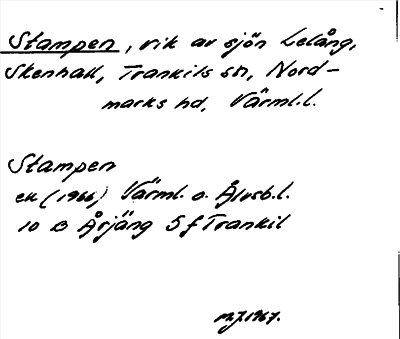 Stampen, vik av sjön Lelång,
Skenhall, Trankils sn, Nord-
marks hd, Värml.l.
Stampen
ek (1966) Värml. o. Älvsb.l.
10 B Årjäng 5 f Trankil
1967.